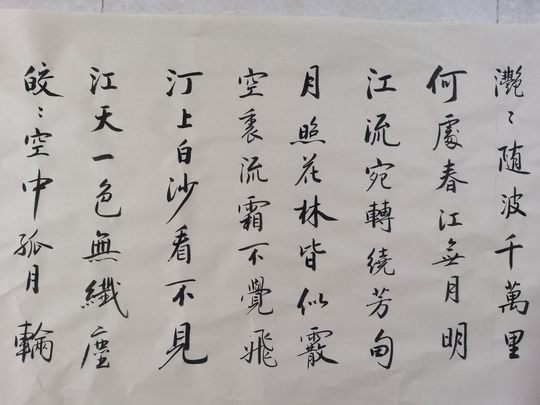 灔〻随波千萬里
何處春江無月明
江流宛轉繞芳甸
月照花林皆似霰
空裏流霜不覺飛
汀上白沙看不見
江天一色無纖塵
皎〻空中孤月輪